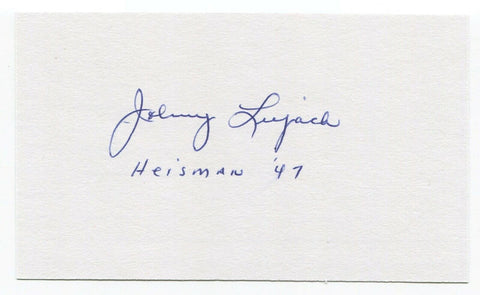 Johnny Lujack
Heisman '47